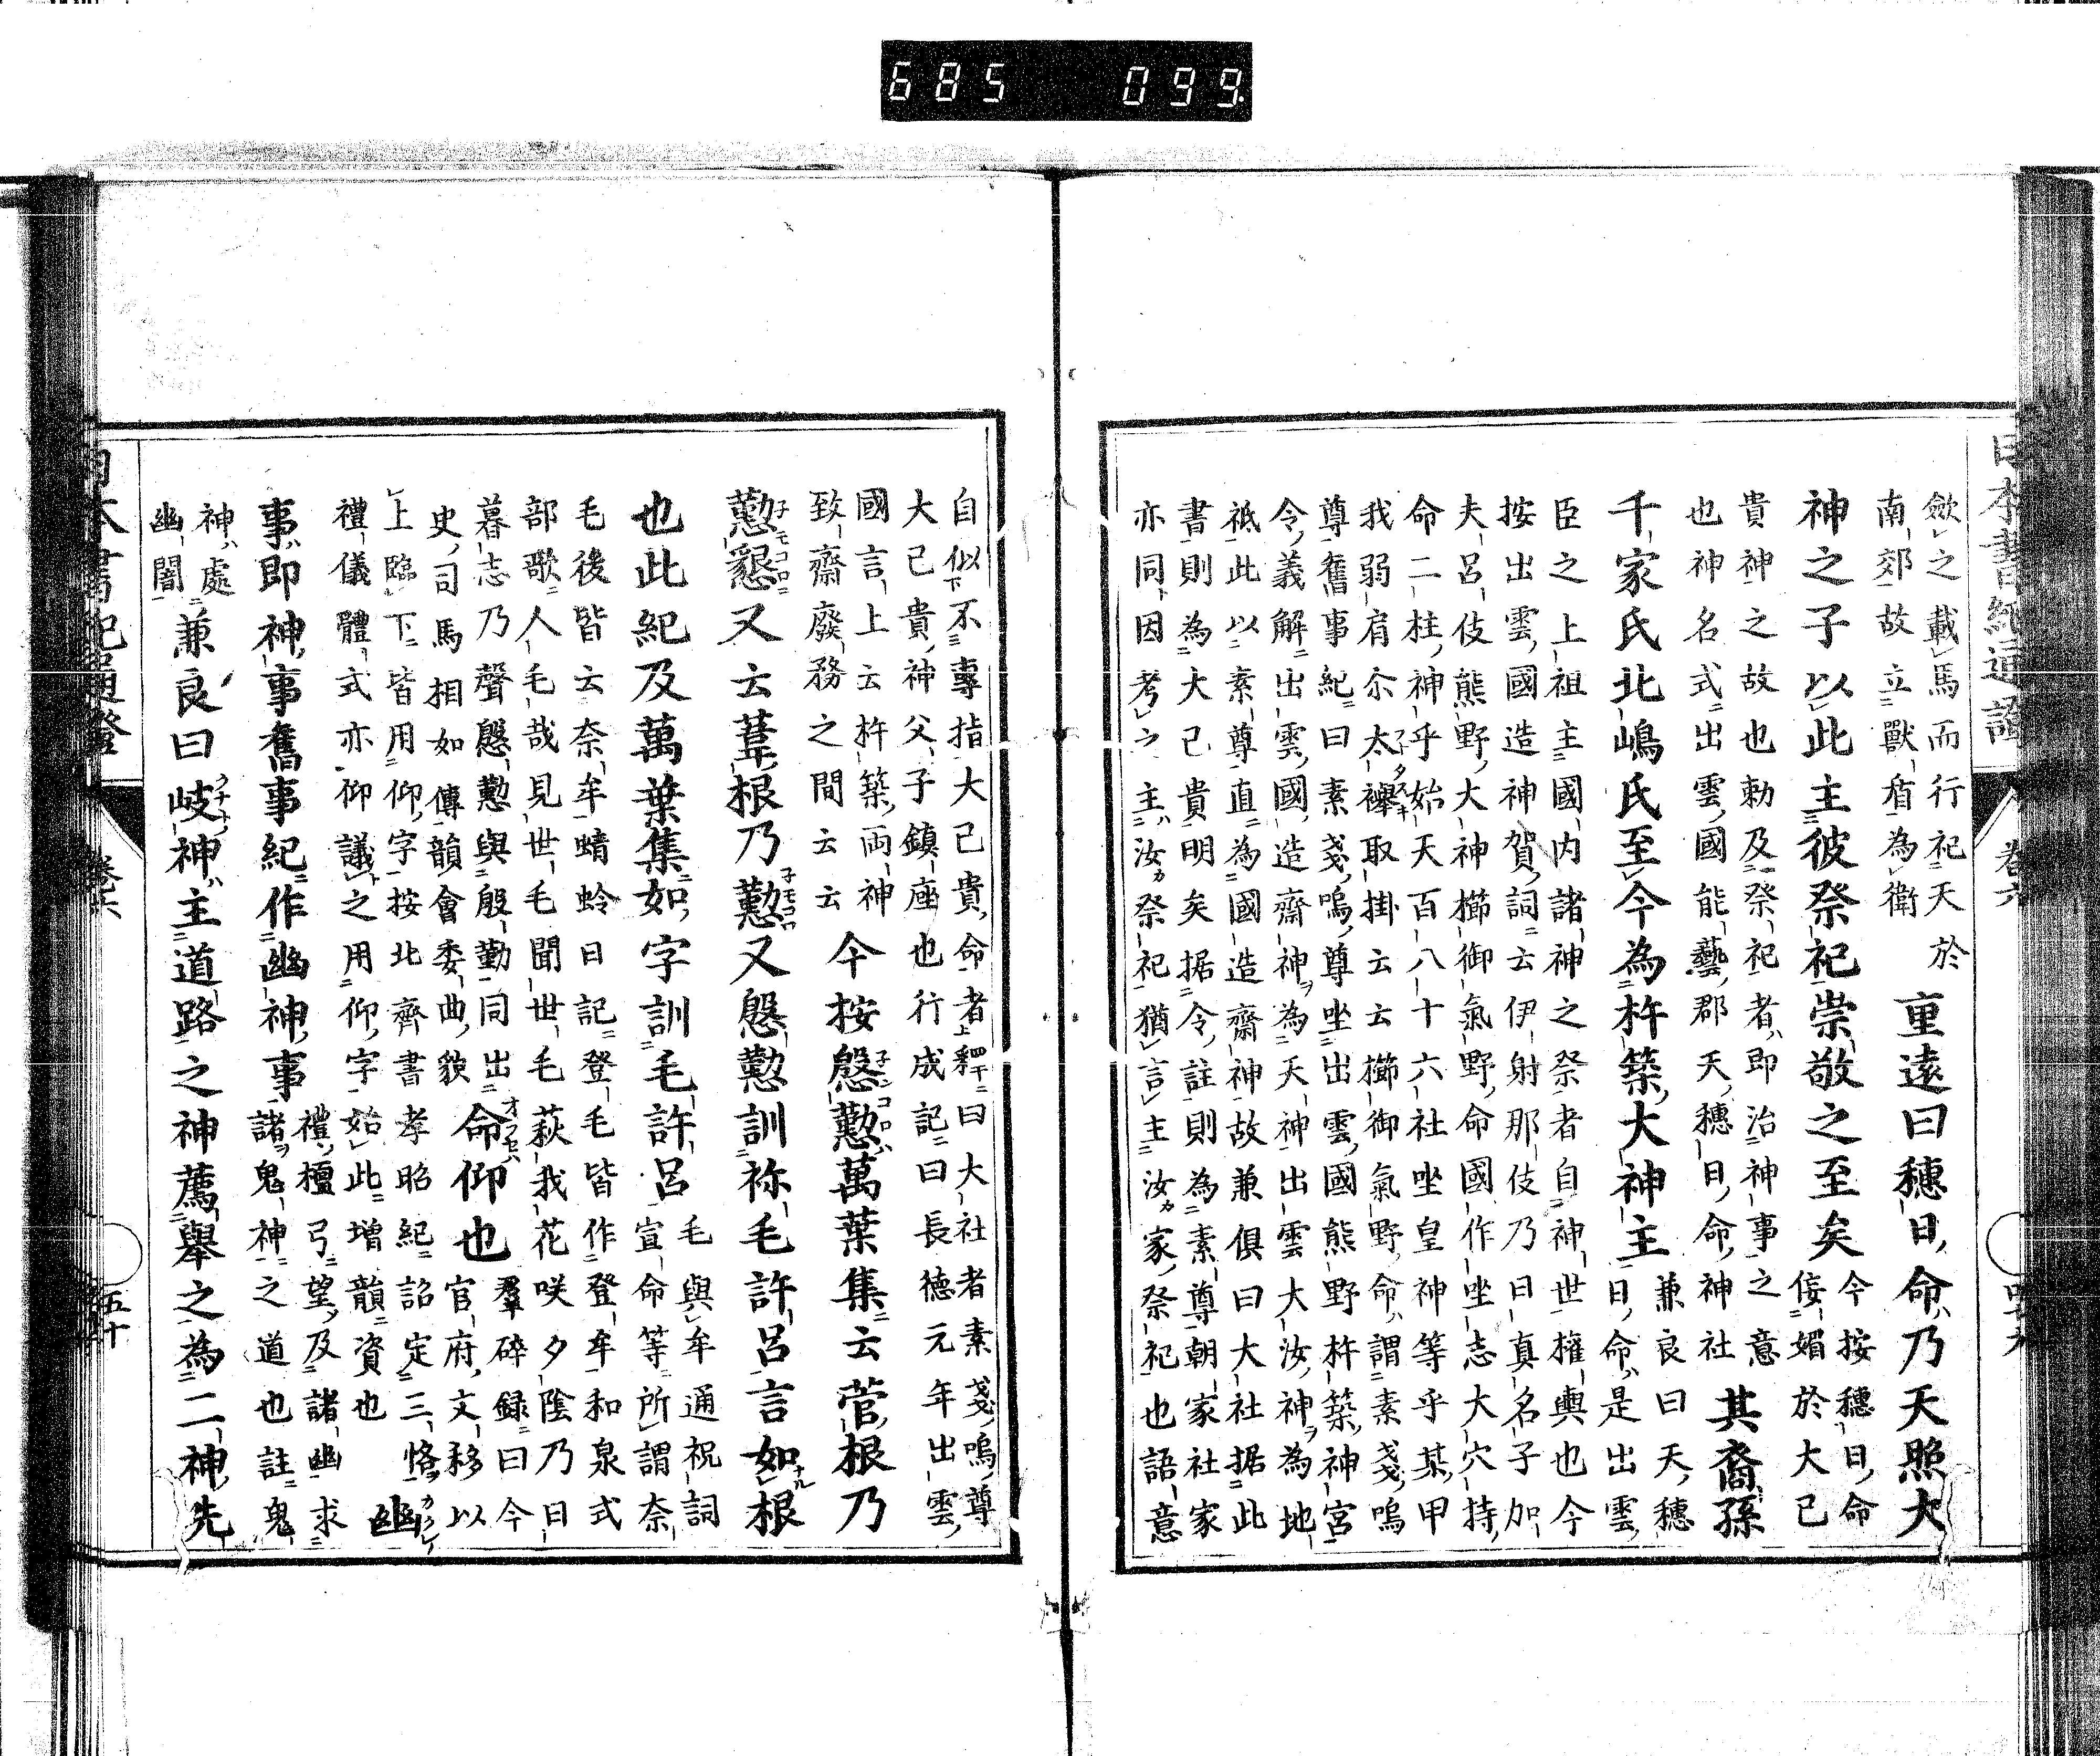 日本書紀通證 卷六 四十九
歛之載馬而行祀天於
南郊故立獸盾為衛
重遠曰穗日命ハ乃天照大
神之子以此主彼祭祀崇敬之至矣
今按穗日命
侫媚於大已
貴神之故也勅及祭祀者即治神事之意
也神名式出雲國能藝郡天穗日命神社
其裔孫
千家氏北嶋氏至今為杵築大神主
兼良曰天穗
日命ハ是出雲
臣之上祖主國内諸神之祭者自神世擁輿也今
按出雲國造神賀詞云伊射那伎乃日真名子加
夫呂伎熊野大神櫛御氣野命國作坐志大穴持
命二柱神乎始天百八十六社坐皇神等乎某甲
我弱肩尒太襷取掛云云櫛御氣野命ハ謂素戔嗚
尊舊事紀曰素戔嗚尊坐出雲國熊野杵築神宮
令義解出雲國造齋神ヲ為天神出雲大汝神ヲ為地
祇此以素尊直為國造齋神故兼俱曰大社据此
書則為大己貴明矣据令註則為素尊朝家社家
亦同因考之主ハ汝カ祭祀猶言主汝カ家祭祀也語意
自似不專指大己貴命者釋曰大社者素戔嗚尊
大己貴神父子鎮座也行成記曰長德元年出雲
國言上云杵築兩神
致齋廢務之間云云
今按慇懃ハ萬葉集云菅根乃
懃懇又云葦根乃懃又慇懃訓祢毛許呂言如根
也此紀及萬葉集如字訓毛許呂
毛與牟通祝詞
宣命等所謂奈
毛後皆云奈牟蜻蛉日記登毛皆作登牟和泉式
部歌人毛哉見世毛聞世毛萩我花咲夕陰乃日
暮志乃聲慇懃與殷勤同出
史司馬相如傳韻會委曲貌
命仰也
羣碎録曰今
官府文移以
上臨下皆用仰字按北齊書孝昭紀詔定三恪
禮儀體式亦仰議之用仰字始此增韻資也
幽
事ハ即神事舊事紀作幽神事
禮檀弓望及諸幽求
諸鬼神之道也註鬼
神ハ處
幽闇
兼良曰岐神ハ主道路之神薦舉之為二神先
日本書紀通證 卷六 五十
685 099